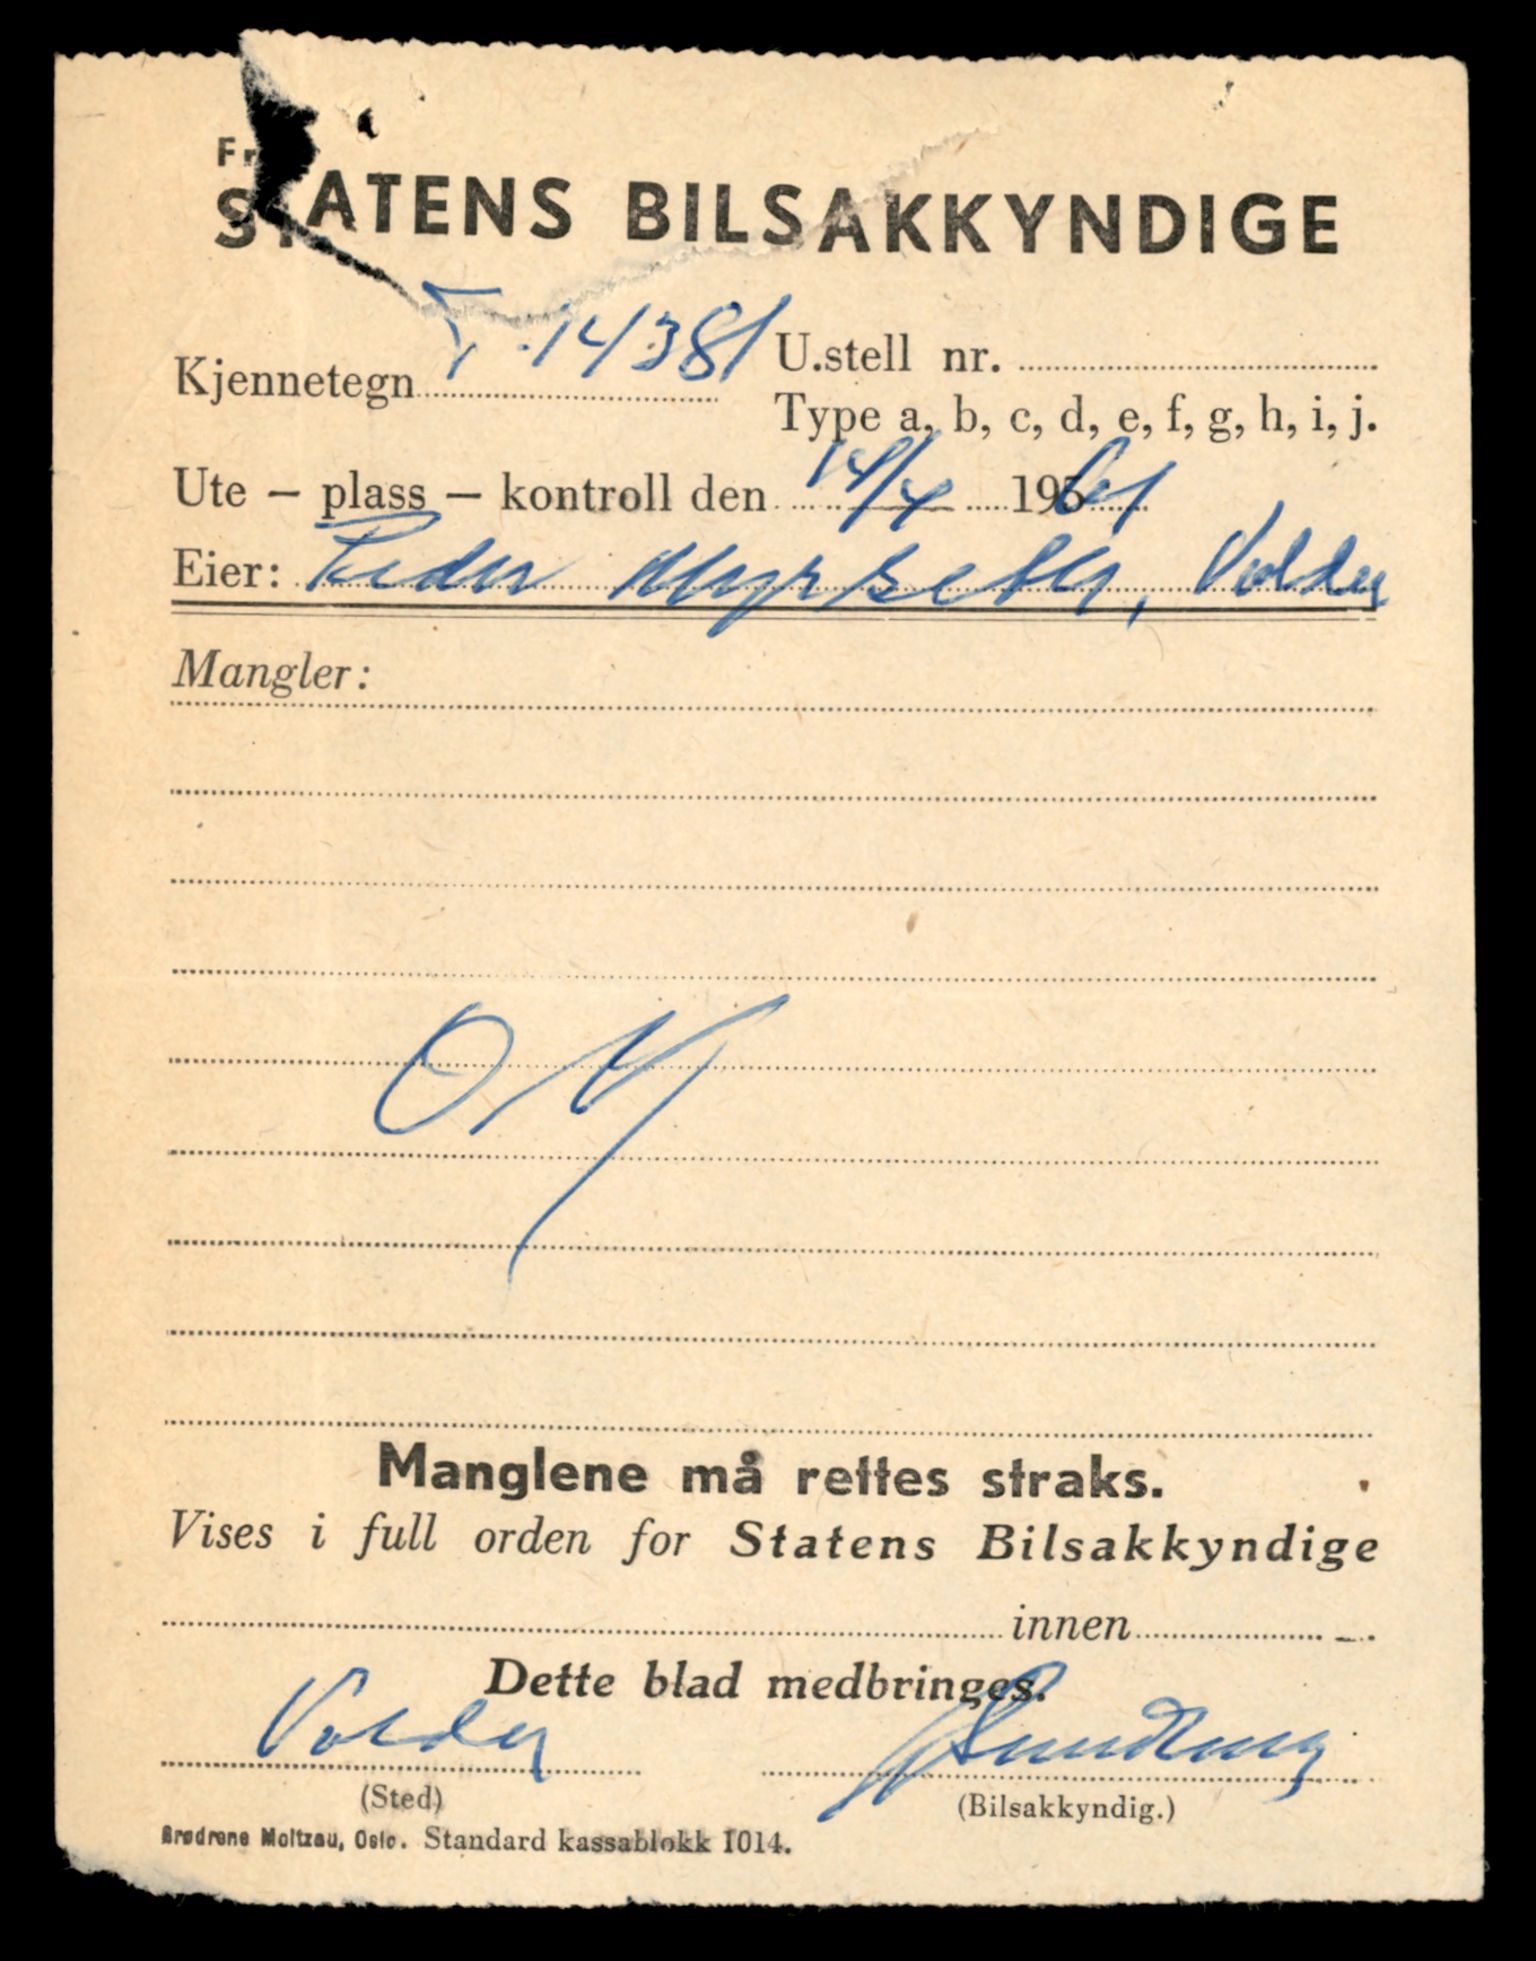 Fra
STATENS BILSAKKYNDIGE
Kjennetegn T-14381 U.stell nr.
Type a, b, c, d, e, f, g, h, i, j.
Ute – plass – kontroll den 14/4 1961
Eier: Peder Myrseth, Volda
Mangler:
OK
Manglene må rettes straks.
Vises i full orden for Statens Bilsakkyndige
innen
Dette blad medbringes.
Volda
(Sted) (Bilsakkyndig.)
Brødrene Moltzau, Oslo. Standard kassablokk 1014.